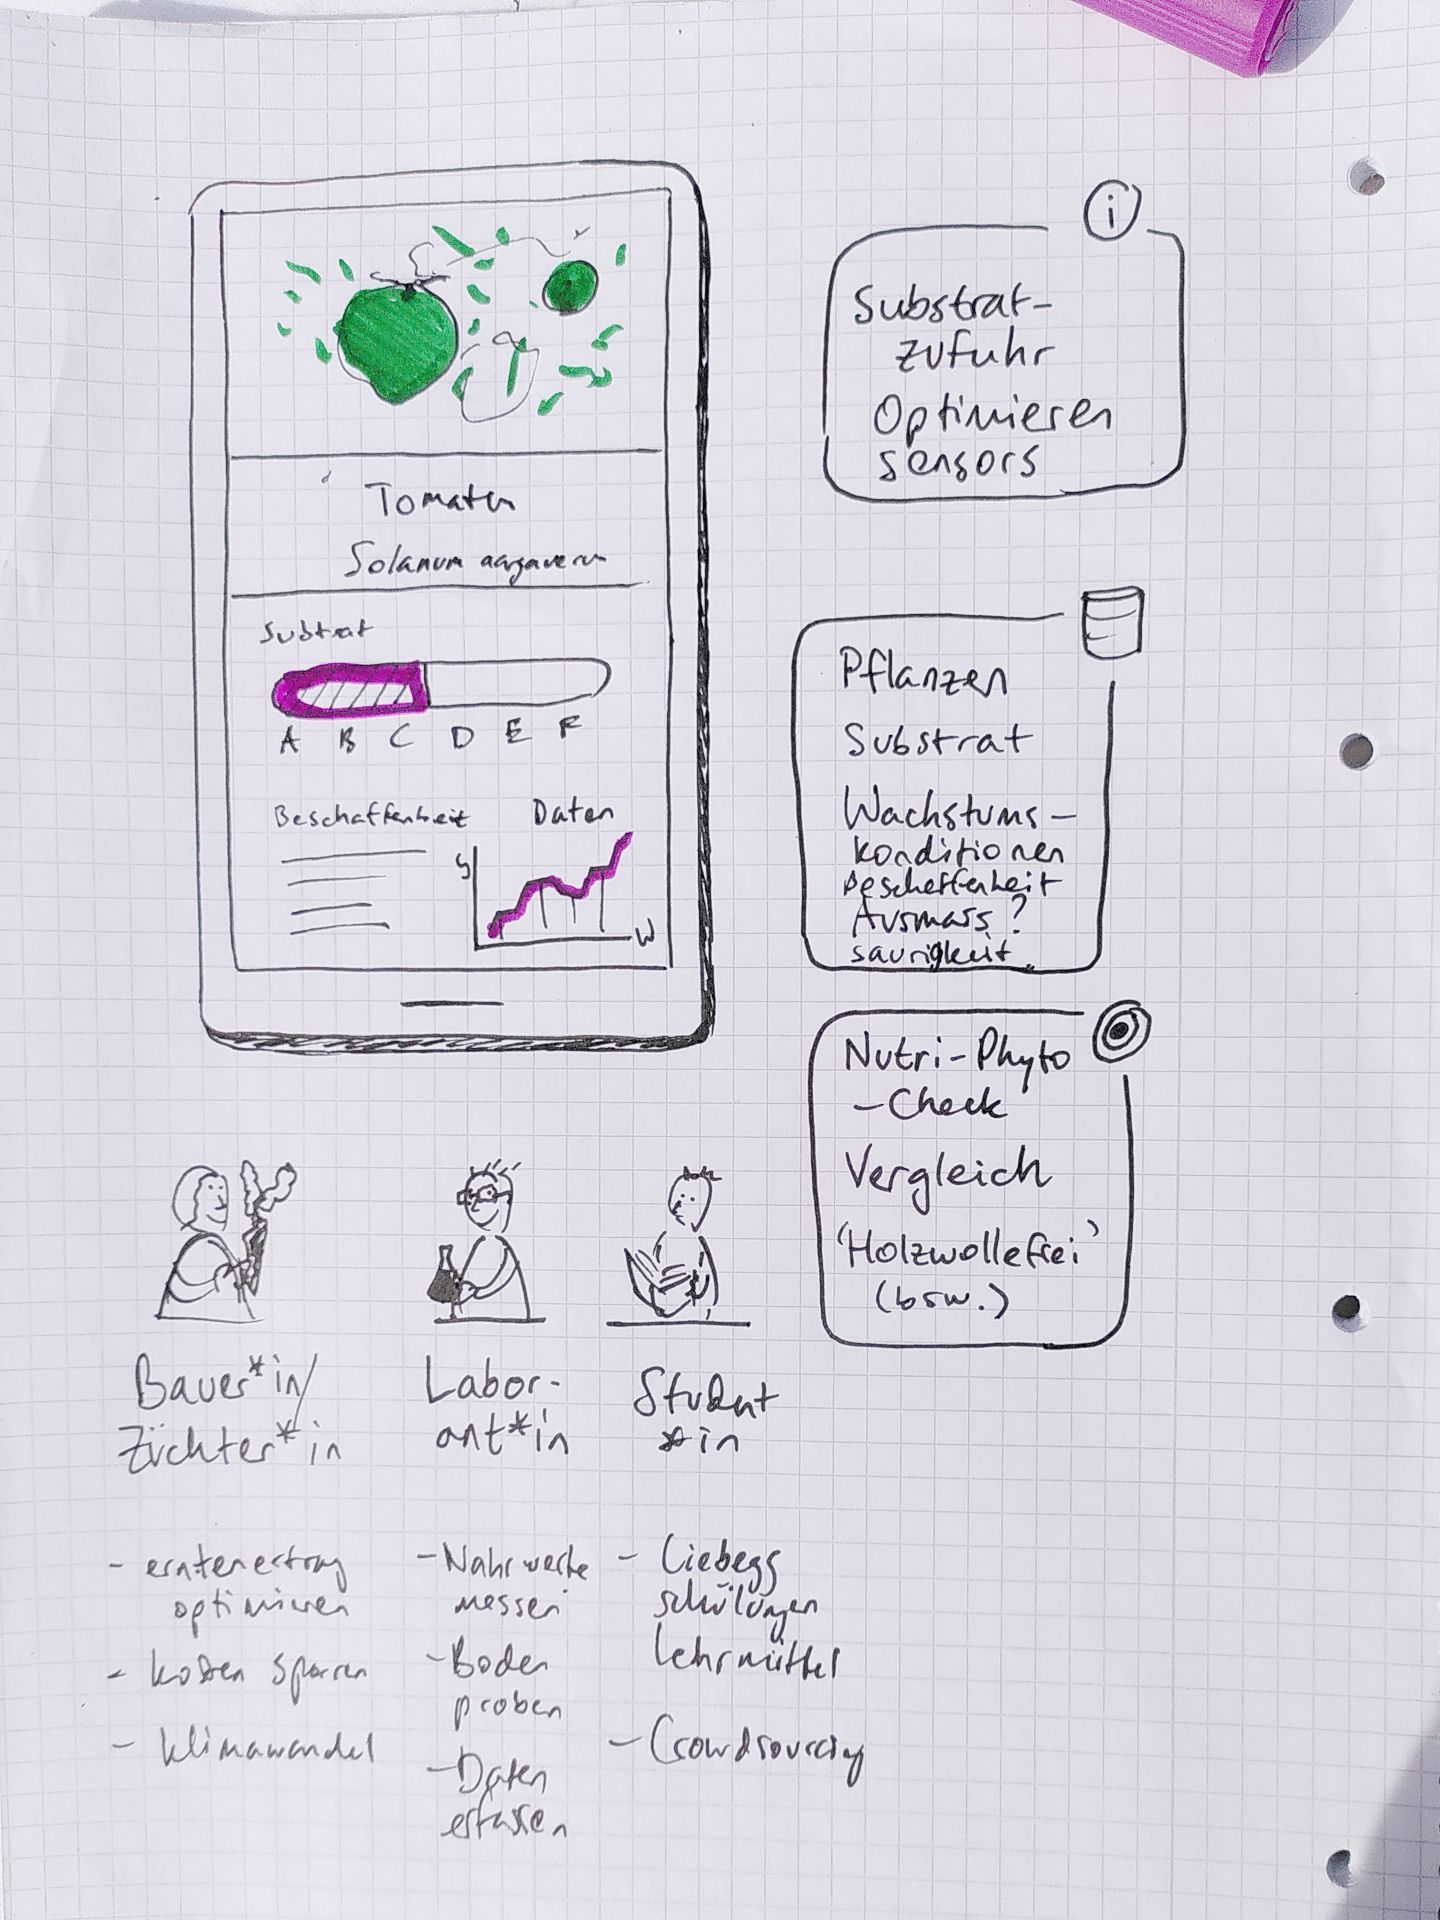 Tomaten
Solanum aargaverum
Subtrat
A B C D E F
Beschaffenheit
Daten
y
W
i
Substrat-
zufuhr
Optimieren
sensors
Pflanzen
Substrat
Wachstums-
konditionen
Beschaffenheit
Ausmass?
saurigkeit
Nutri-Phyto
-Check
Vergleich
'Holzwollefrei'
(bsw.)
Bauer*in/
Züchter*in
- erntenertrag
optimieren
- kosten sparen
- klimawandel
Labor-
ant*in
- Nährwerte
messen
- Boden
proben
- Daten
erfassen
Student
*in
- Liebegg
schulungen
Lehrmittel
- Crowdsourcing